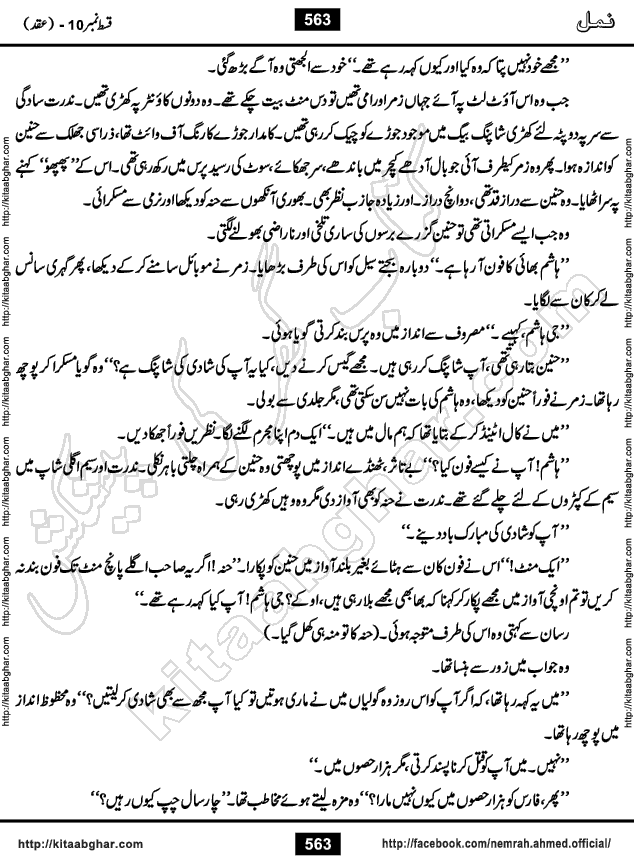 نمل 563 قسط نمبر 10 - (عقد)
’’مجھے خود نہیں پتا کہ وہ کیا اور کیوں کہہ رہے تھے۔‘‘ خود سے الجھتی وہ آگے بڑھ گئی۔
جب وہ اس آؤٹ لٹ پہ آئے جہاں زمر اور امی تھیں تو دس منٹ بیت چکے تھے۔ وہ دونوں کاؤنٹر پہ کھڑی تھیں۔ ندرت سادگی
سے سر پہ دوپٹہ لئے کھڑی شاپنگ بیگ میں موجود جوڑے کو چیک کر رہی تھیں۔ کامدار جوڑے کا رنگ آف وائٹ تھا، ذرا سی جھلک سے حنین
کو اندازہ ہوا۔ پھر وہ زمر کی طرف آئی جو بال آدھے کیچر میں باندھے، سر جھکائے، سوٹ کی رسید پرس میں رکھ رہی تھی۔ اس کے ’’پھپھو‘‘ کہنے
پہ سر اٹھایا۔ وہ حنین سے دراز قد تھی، دو انچ دراز۔ اور زیادہ جاذب نظر بھی۔ بھوری آنکھوں سے حنہ کو دیکھا اور نرمی سے مسکرائی۔
وہ جب ایسے مسکراتی تھی تو حنین گزرے برسوں کی ساری تلخی اور ناراضی بھولنے لگتی۔
’’ہاشم بھائی کا فون آ رہا ہے۔‘‘ دوبارہ بجتے سیل کو اس کی طرف بڑھایا۔ زمر نے موبائل سامنے کر کے دیکھا، پھر گہری سانس
لے کر کان سے لگایا۔
’’جی ہاشم، کہیے۔‘‘ مصروف سے انداز میں وہ پرس بند کرتی گویا ہوئی۔
’’حنین بتا رہی تھی، آپ شاپنگ کر رہی ہیں۔ مجھے گیس کرنے دیں، کیا یہ آپ کی شادی کی شاپنگ ہے؟‘‘ وہ گویا مسکرا کر پوچھ
رہا تھا۔ زمر نے فوراً حنین کو دیکھا، وہ ہاشم کی بات نہیں سن سکتی تھی، مگر جلدی سے بولی۔
’’میں نے کال اٹینڈ کر کے بتایا تھا کہ ہم مال میں ہیں۔‘‘ ایک دم اپنا آپ مجرم لگنے لگا۔ نظریں فوراً جھکا دیں۔
’’ہاشم! آپ نے کیسے فون کیا؟‘‘ بے تاثر، ٹھنڈے انداز میں پوچھتی وہ حنین کے ہمراہ چلتی باہر نکلی۔ ندرت اور سیم اگلی شاپ میں
سیم کے کپڑوں کے لئے چلے گئے تھے۔ ندرت نے حنہ کو بھی آواز دی مگر وہ وہیں کھڑی رہی۔
’’آپ کو شادی کی مبارک باد دینے۔‘‘
’’ایک منٹ!‘‘ اس نے فون کان سے ہٹائے بغیر بلند آواز میں حنین کو پکارا۔ ’’حنہ! اگر یہ صاحب اگلے پانچ منٹ تک فون بند نہ
کریں تو تم اونچی آواز میں مجھے پکار کر کہنا کہ بھابھی مجھے بلا رہی ہیں، اوکے؟ جی ہاشم! آپ کیا کہہ رہے تھے۔‘‘
رسان سے کہتی وہ اس کی طرف متوجہ ہوئی۔ (حنہ کا تو منہ ہی کھل گیا۔)
وہ جواب میں زور سے ہنسا تھا۔
’’میں یہ کہہ رہا تھا، کہ اگر آپ کو اس روز وہ گولیاں میں نے ماری ہوتیں تو کیا آپ مجھ سے بھی شادی کر لیتیں؟‘‘ وہ محظوظ انداز
میں پوچھ رہا تھا۔
’’نہیں۔ میں آپ کو قتل کرنا پسند کرتی، مگر ہزار حصوں میں۔‘‘
’’پھر، فارس کو ہزار حصوں میں کیوں نہیں مارا؟‘‘ وہ مزہ لیتے ہوئے مخاطب تھا۔ ’’چار سال چپ کیوں رہیں؟‘‘
http://kitaabghar.com 563 http://facebook.com/nemrah.ahmed.official/
http://kitaabghar.com http://kitaabghar.com http://kitaabghar.com http://kitaabghar.com http://kitaabghar.com http://kitaabghar.com
http://kitaabghar.com http://kitaabghar.com http://kitaabghar.com http://kitaabghar.com http://kitaabghar.com http://kitaabghar.com
کتاب گھر کی پیشکش
kitaabghar.com